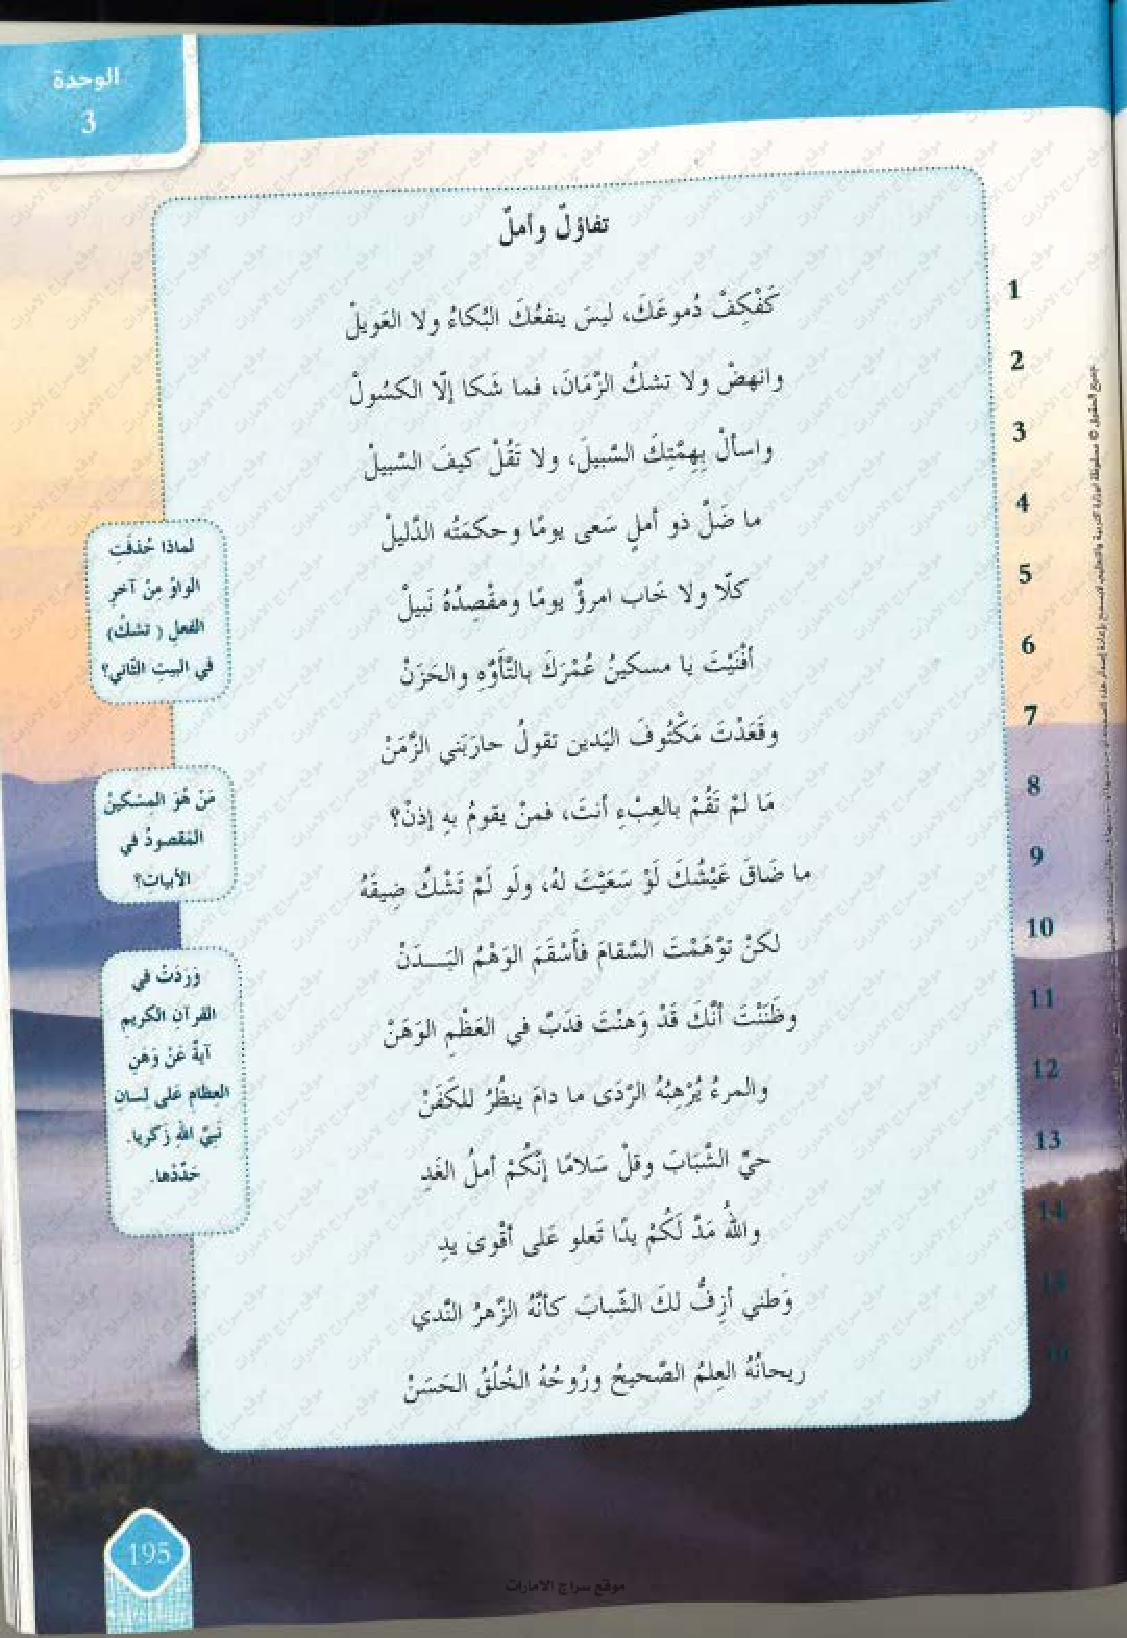 الوحدة
3
تفاؤلٌ وأملٌ
1 كَفْكِفْ دُموعَكَ، ليسَ ينفعُكَ البُكاءُ ولا العَويلْ
2 وانهضْ ولا تشكُ الزّمَانَ، فما شَكا إلّا الكسُولْ
3 واسألْ بِهِمّتِكَ السّبيلَ، ولا تَقُلْ كيفَ السّبيلْ
4 ما ضَلّ ذو أملٍ سَعى يومًا وحكمَتُه الدّليلْ
5 كلّا ولا خَاب امرؤٌ يومًا ومقْصِدُهُ نَبيلْ
6 أفْنَيْتَ يا مسكينُ عُمْرَكَ بالتَّأَوّهِ والحَزَنْ
7 وقَعَدْتَ مَكْتُوفَ اليَدين تقولُ حارَبَني الزّمَنْ
8 مَا لمْ تَقُمْ بالعِبْءِ أنتَ، فمنْ يقومُ بهِ إذنْ؟
9 ما ضَاقَ عَيْشُكَ لَوْ سَعَيْتَ لهُ، ولَو لَمْ تَشْكُ ضِيقَهُ
10 لكنْ توّهَمْتَ السّقامَ فأَسْقَمَ الوَهْمُ البَـــدَنْ
11 وظَنَنْتَ أنَّكَ قَدْ وَهنْتَ فدَبّ في العَظْمِ الوَهَنْ
12 والمرءُ يُرْهِبُهُ الرّدَى ما دامَ ينظُرُ للكَفَنْ
13 حيِّ الشّبَابَ وقلْ سَلامًا إنّكُمْ أملُ الغَدِ
14 واللهُ مَدّ لَكُمْ يدًا تَعلو عَلى أقْوى يدِ
15 وَطني أزِفُّ لكَ الشّبابَ كأنّهُ الزّهرُ النّدي
16 ريحانُهُ العِلمُ الصّحيحُ ورُوحُهُ الخُلُقُ الحَسَنْ
لماذا حُذفَتِ
الواوُ مِنْ آخرِ
الفعلِ (تشكُ)
في البيتِ الثّاني؟
مَنْ هُوَ المِسْكينُ
المَقصودُ في
الأبيات؟
وَرَدَتْ في
القرآنِ الكريمِ
آيةٌ عَنْ وَهَنِ
العِظامِ عَلى لِسانِ
نَبيِّ اللهِ زَكريا.
حَدّدْها.
195
موقع سراج الامارات